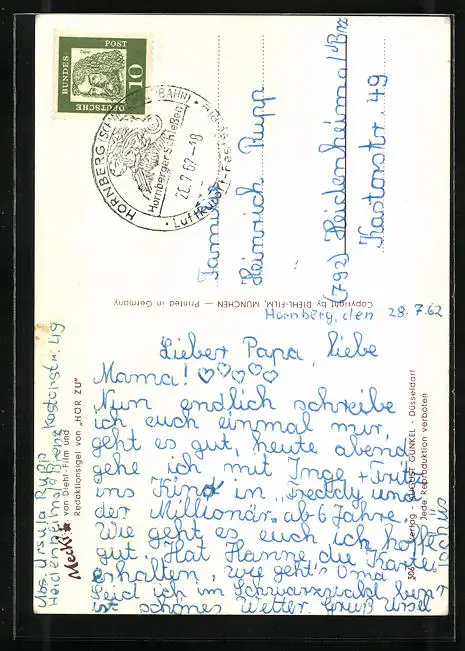 DEUTSCHE
BUNDES
POST
10
HORNBERG (SCHWARZWALDBAHN)
Hornberger Schießen
26.7.62-18
Luftkurort
Familie
Heinrich Rupp
(792) Heidenheim a/Brz
Kastorstr. 49
Copyright by DIEHL-FILM, MÜNCHEN — Printed in Germany
Hornberg, den 28.7.62
Lieber Papa, liebe
Mama! ♡♡♡♡♡
Nun endlich schreibe
ich euch einmal, mir
geht es gut, heute abend
gehe ich mit Inge + Fritz
ins Kino in "Freddy und
der Millionär" ab 6 Jahre.
Wie geht es euch ich hoffe
gut. Hat Hanne die Karte
erhalten, wie geht's Oma
Seid ich im Schwarzwald bin
ist schönes Wetter. Gruß Ursel
Tschüs
Abs. Ursula Rupp
Heidenheim a/Brenz Kastorstr. 49
Mecki
von Diehl-Film und
Redaktionsigel von "HÖR ZU"
Verlag - AUGUST GUNKEL - Düsseldorf
Jede Reproduktion verboten